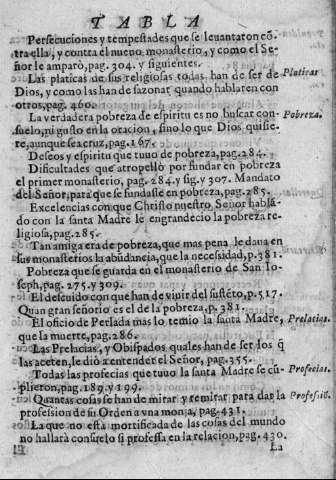 TABLA
Persecuciones y tempestades que se leuantaron cõ-
tra ella, y contra el nueuo monasterio, y como el Se-
ñor le amparò, pag. 304. y siguientes.
Las platicas de sus religiosas todas han de ser de Platicas
Dios, y como las han de sazonar quando hablaren con
otros, pag. 460.
La verdadera pobreza de espiritu es no buscar con- Pobreza.
suelo, ni gusto en la oracion, sino lo que Dios quisie-
re, aunque sea cruz, pag. 167.
Deseos y espiritu que tuuo de pobreza, pag. 284.
Dificultades que atropellò por fundar en pobreza
el primer monasterio, pag. 284. y sig. y 307. Mandato
del Señor, para que se fundasse en pobreza, pag. 285.
Excelencias con que Christo nuestro Señor hablã-
do con la santa Madre le engrandecio la pobreza re-
ligiosa, pag. 285.
Tan amiga era de pobreza, que mas pena le daua en
sus monasterios la abũdancia, que la necessidad, p. 381.
Pobreza que se guarda en el monasterio de San Io-
seph, pag. 275. y 309.
El descuido con que han de viuir del sustẽto, p. 517.
Quan gran señorio es el de la pobreza, p. 381.
El oficio de Perlada mas lo temio la santa Madre, Prelacias.
que la muerte, pag. 286.
Las Prelacias, y Obispados quales han de ser los q̃
las aceten, le diò a entender el Señor, pag. 355.
Todas las profecias que tuuo la santa Madre se cũ- Profecias.
plieron, pag. 189. y 199.
Quantas cosas se han de mirar y remirar para dar la Professiõ.
profession de su Orden a vna monja, pag. 431.
La que no està mortificada de las cosas del mundo
no hallarà consuelo si professa en la relacion, pag. 430.
La